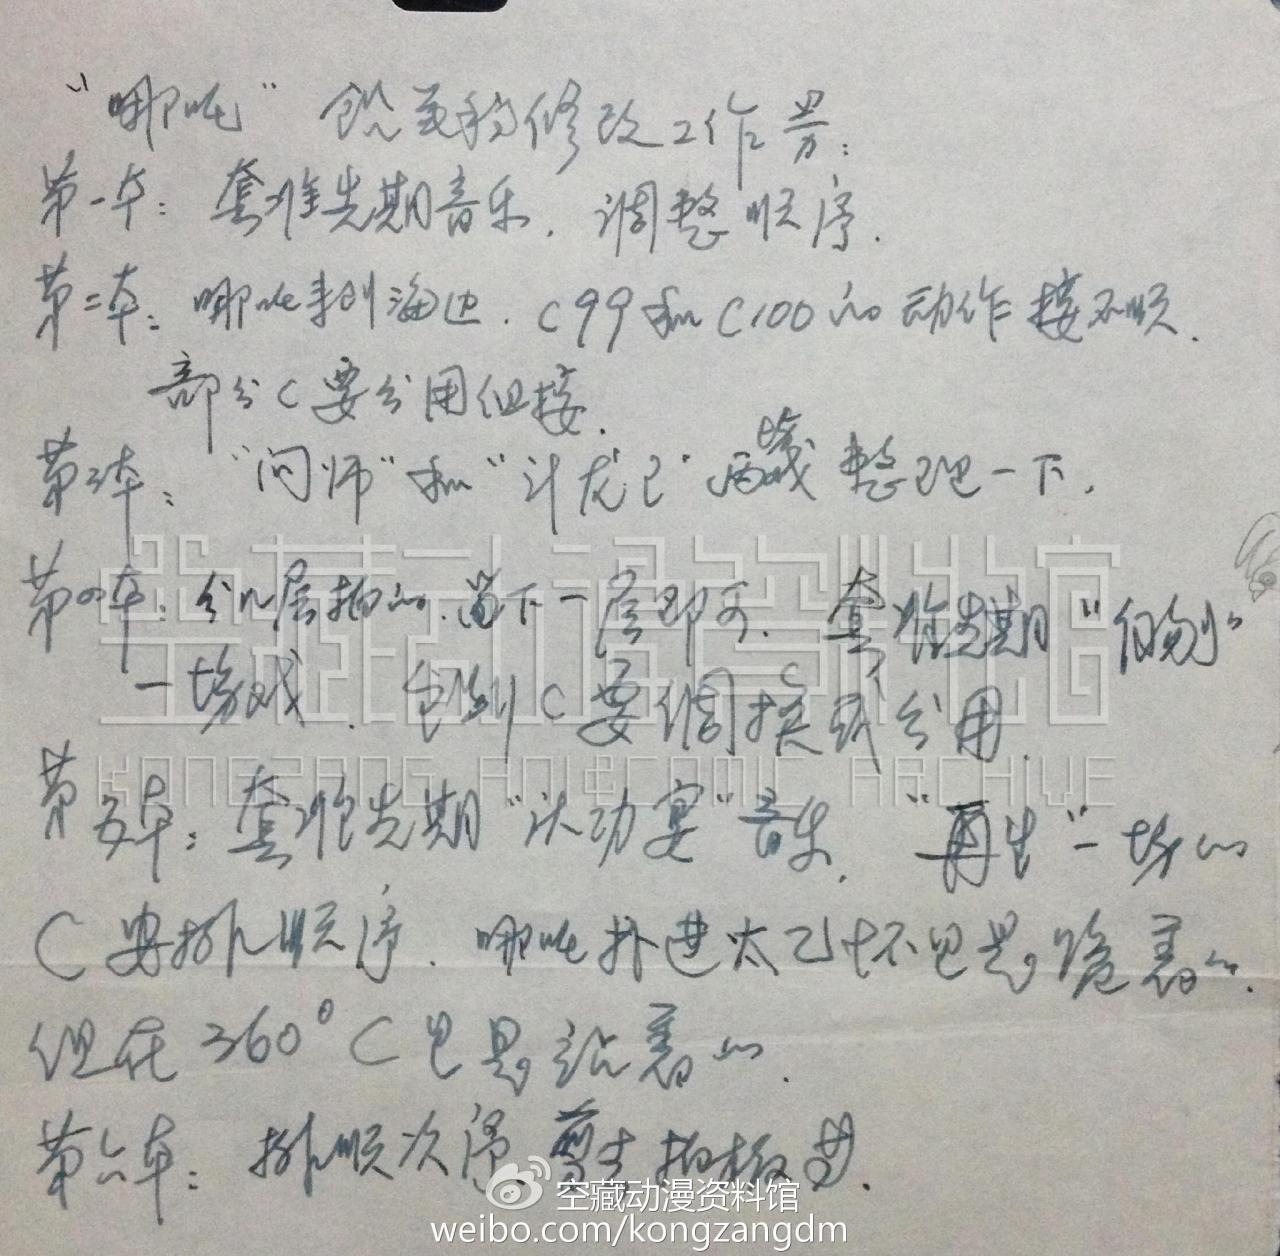 “哪吒” 铅笔稿修改工作
第一本：套准先期音乐．调整顺序．
第二本：哪吒来到海边．C99和C100的动作接不顺．
部分C要分用组接．
第三本：“问师”和“计龙王”两场戏整理一下．
第四本：分几层拍的．留下一层即可．套准先期“自刎”
一场戏．C要调换或分用．
第五本：套准先期“庆功宴”音乐．“再生”一场的
C要排顺序．哪吒扑进太乙怀里是跪着的．
但在360°C里是站着的．
第六本：排顺次序．剪去拍板等．
空藏动漫资料馆
KONGZANG ANI&COMIC ARCHIVE
空藏动漫资料馆
weibo.com/kongzangdm